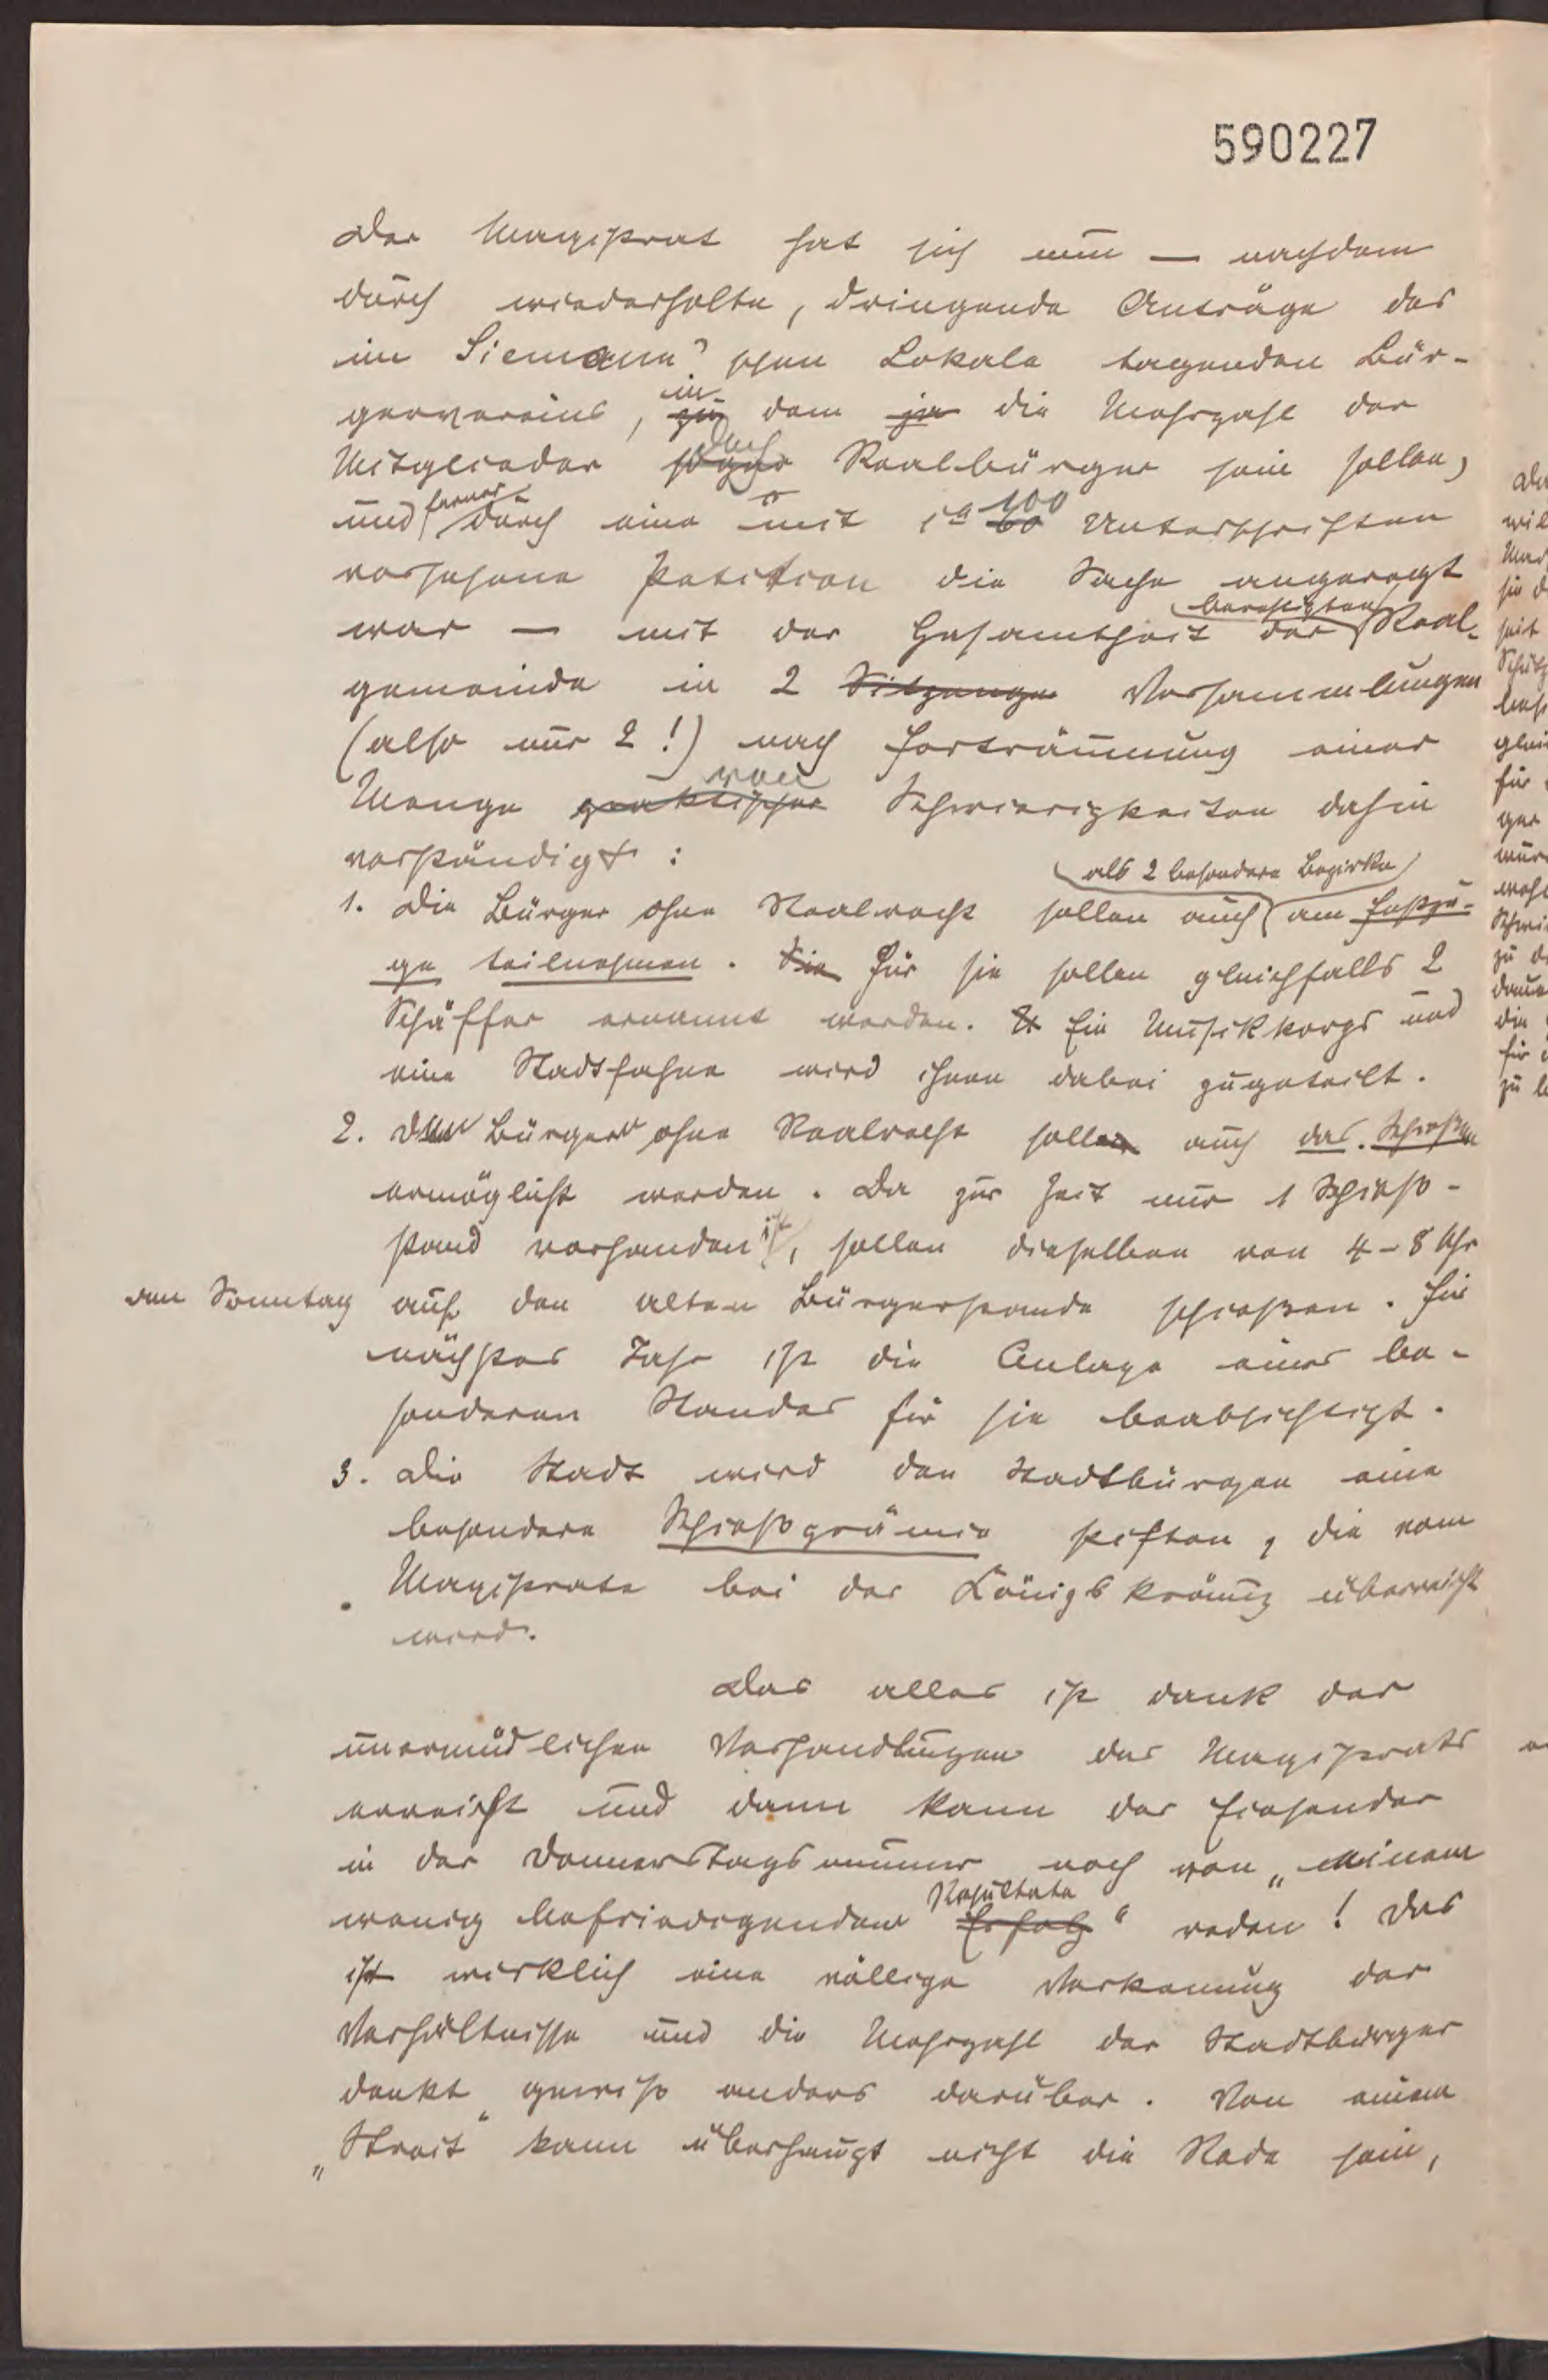 590227
Der Magistrat hat sich nun — nachdem
durch wiederholte, dringende Anträge des
im Siemann'schen Lokale tagenden Bür-
gervereins, in dem die Mehrzahl der
Mitglieder doch Realbürger sein sollen,
und ferner durch eine mit 100 Unterschriften
versehene Petition die Sache angeregt
war — mit der Gesamtheit der berechtigten Real-
gemeinde in 2 Sitzungen Versammlungen
(also nur 2!) nach Forträumung einer
Menge von Schwierigkeiten dahin
verständigt:
1. Die Bürger ohne Realrecht sollen auch als 2 besondere Bezirke am Festzu-
ge teilnehmen. Sie Für sie sollen gleichfalls 2
Schäffer ernannt werden. Ein Musikkorps und
eine Stadtfahne wird ihnen dabei zugeteilt.
2. Den Bürgern ohne Realrecht soll auch das Schießen
ermöglicht werden. Da zur Zeit nur 1 Schieß-
stand vorhanden ist, sollen dieselben von 4-8 Uhr
am Sonntag auf den alten Bürgerstande schießen. Für
nächstes Jahr ist die Anlage eines be-
sonderen Standes für sie beabsichtigt.
3. Die Stadt wird den Stadtbürgern eine
besondere Schießprämie stiften, die vom
Magistrate bei der Königskrönung überreicht
wird.
Das alles ist dank der
unermüdlichen Verhandlungen des Magistrats
erreicht und dann kann der Einsender
in der Donnerstagsnummer noch von „einem
wenig befriedigendem Erfolg Resultate“ reden! Das
ist wirklich eine völlige Verkennung der
Verhältnisse und die Mehrzahl der Stadtbürger
denkt gewiß anders darüber. Von einem
„Streit“ kann überhaupt nicht die Rede sein,